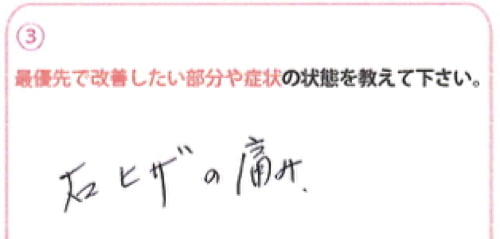 ③
最優先で改善したい部分や症状の状態を教えて下さい。
右ヒザの痛み.